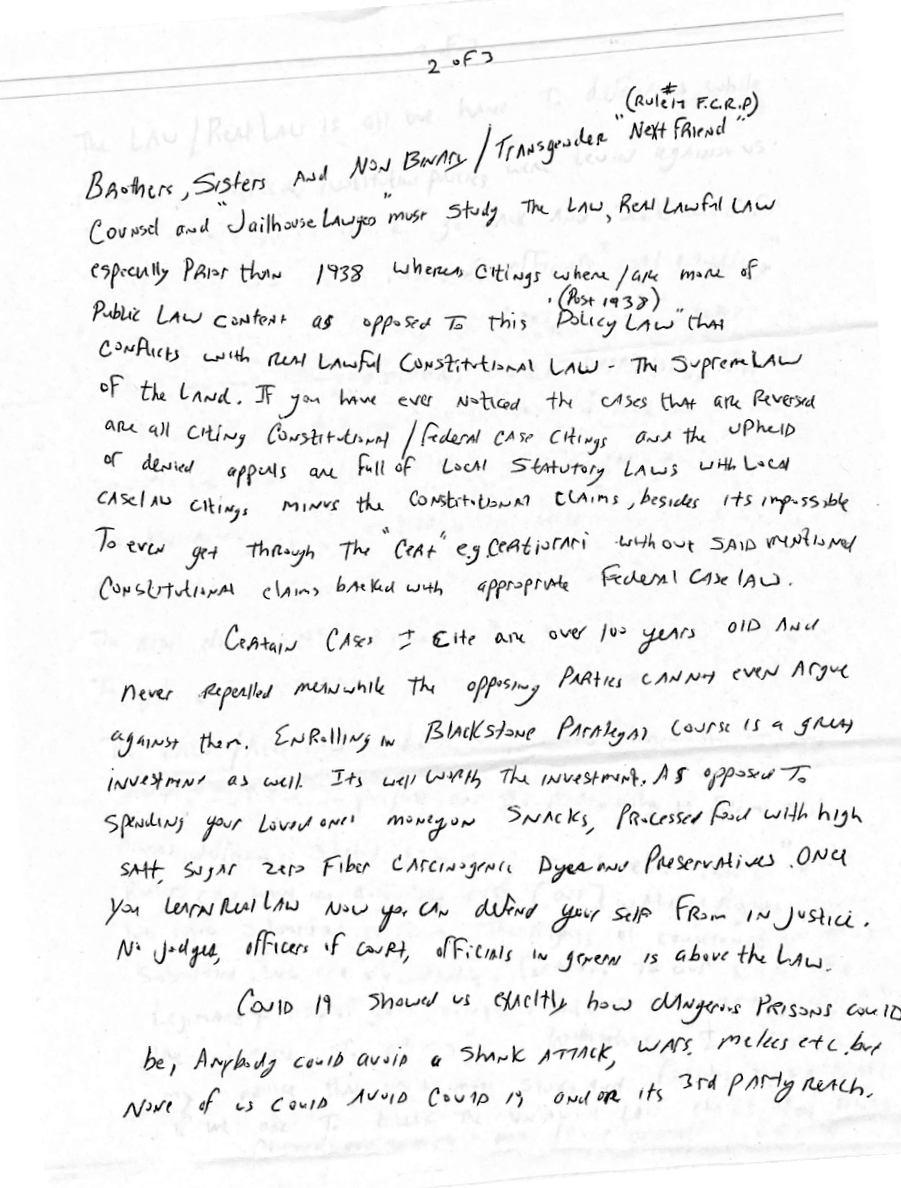 2 of 3
(Rule# 17 F.C.R.P)
Brothers, Sisters and Non Binary / Transgender "Next Friend"
Counsel and "Jailhouse Lawyes" must study the Law, Real Lawful Law
especially Prior than 1938 whereas citings where / are more of
Public Law content as opposed to this "Policy Law" that
(Post 1938)
conflicts with real Lawful Constitutional Law - The Supreme Law
of the Land. If you have ever noticed the cases that are Reversed
are all citing Constitutional / Federal case citings and the upheld
or denied appeals are full of Local Statutory Laws with Local
caselaw citings minus the constitutional claims, besides its impossible
To even get through the "Cert" e.g. Certiorari without said mentioned
Constitutional claims backed with appropriate Federal Case law.
Certain Cases I Cite are over 100 years old and
never repealled meanwhile the opposing Parties cannot even argue
against them. Enrolling in Blackstone Paralegal Course is a great
investment as well. Its well worth the investment. As opposed To
spending your Loved ones money on snacks, Processed food with high
salt, sugar zero Fiber Carcinogenic Dyes and Preservatives". Once
you learn Real Law now you can defend your self From injustice.
No judges, officers of court, officials in general is above the Law.
Covid 19 showed us exacltly how dangerous Prisons could
be, Anybody could avoid a shank attack, wars, melees etc. but
None of us could avoid Covid 19 and or its 3rd party reach.